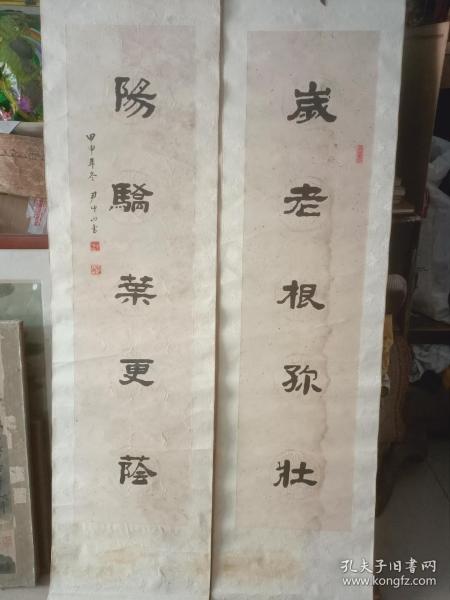 歲老根弥壯
陽驕葉更蔭
甲申年冬
孔夫子旧书网
www.kongfz.com